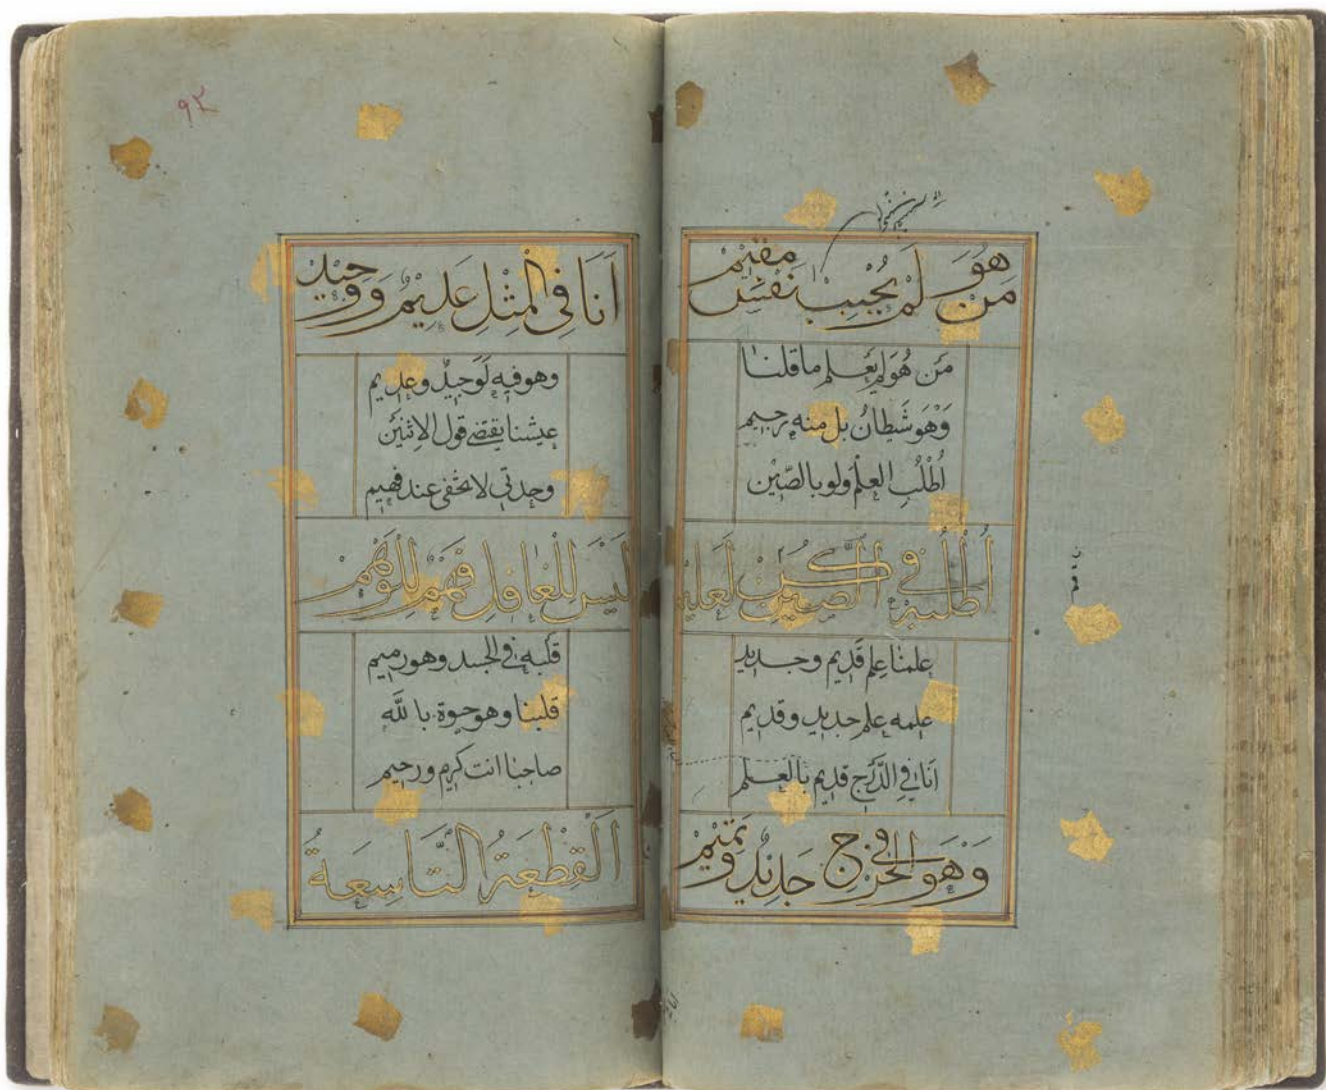 من هُوَ لَمْ يُجِبْ نَفْسٌ مقيمْ
مَن هُوَ لم يعلم ما قلنا
وَهْوَ شَطانُ بل منه رجيم
اُطْلُبِ العِلْمَ ولو بالصّين
اُطْلُبهُ في الصِّينِ لعليم
علمنا علم قديم وجديد
علمه علم جديد وقديم
انا في الدَّرْجِ قديم بالعلم
وَهْوَ في الخرج جديد ويتيم
٩٢
اَنَا فِى الْمِثْلِ عَلِيمٌ وَوَحِيْد
وهو فيه لَوَحِيدٌ وعديم
عيشنا يقتضے قول الاثنين
وحدتى لا تخفى عند فهيم
لَيْسَ لِلْغافِلِ فَهْمٌ لِلْوَهْمْ
قلبه في الجسد وهو رميم
قلبنا وهو حيوة باللّه
صاحبنا انت كريم ورحيم
اَلْقِطْعَةُ التَّاسِعَةُ